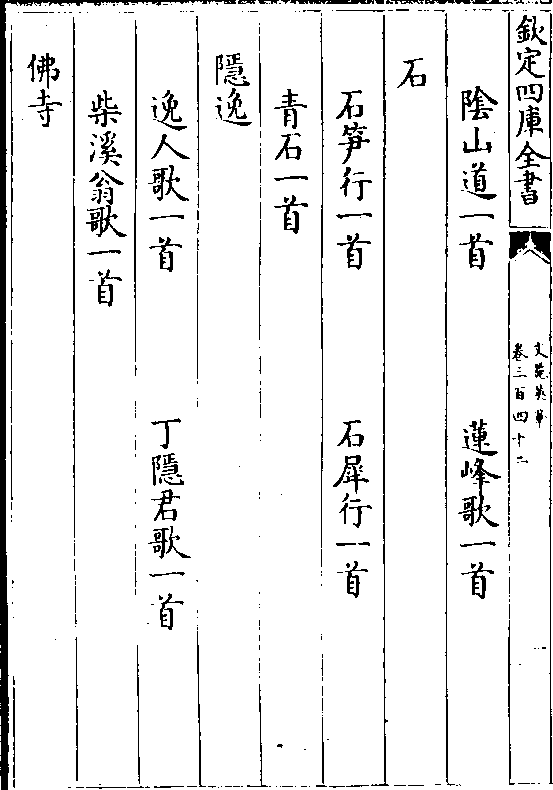 欽定四庫全書
文苑英華
卷三百四十二
陰山道一首　蓮峰歌一首
石
石笋行一首　石犀行一首
青石一首
隱逸
逸人歌一首　丁隱君歌一首
柴溪翁歌一首
佛寺